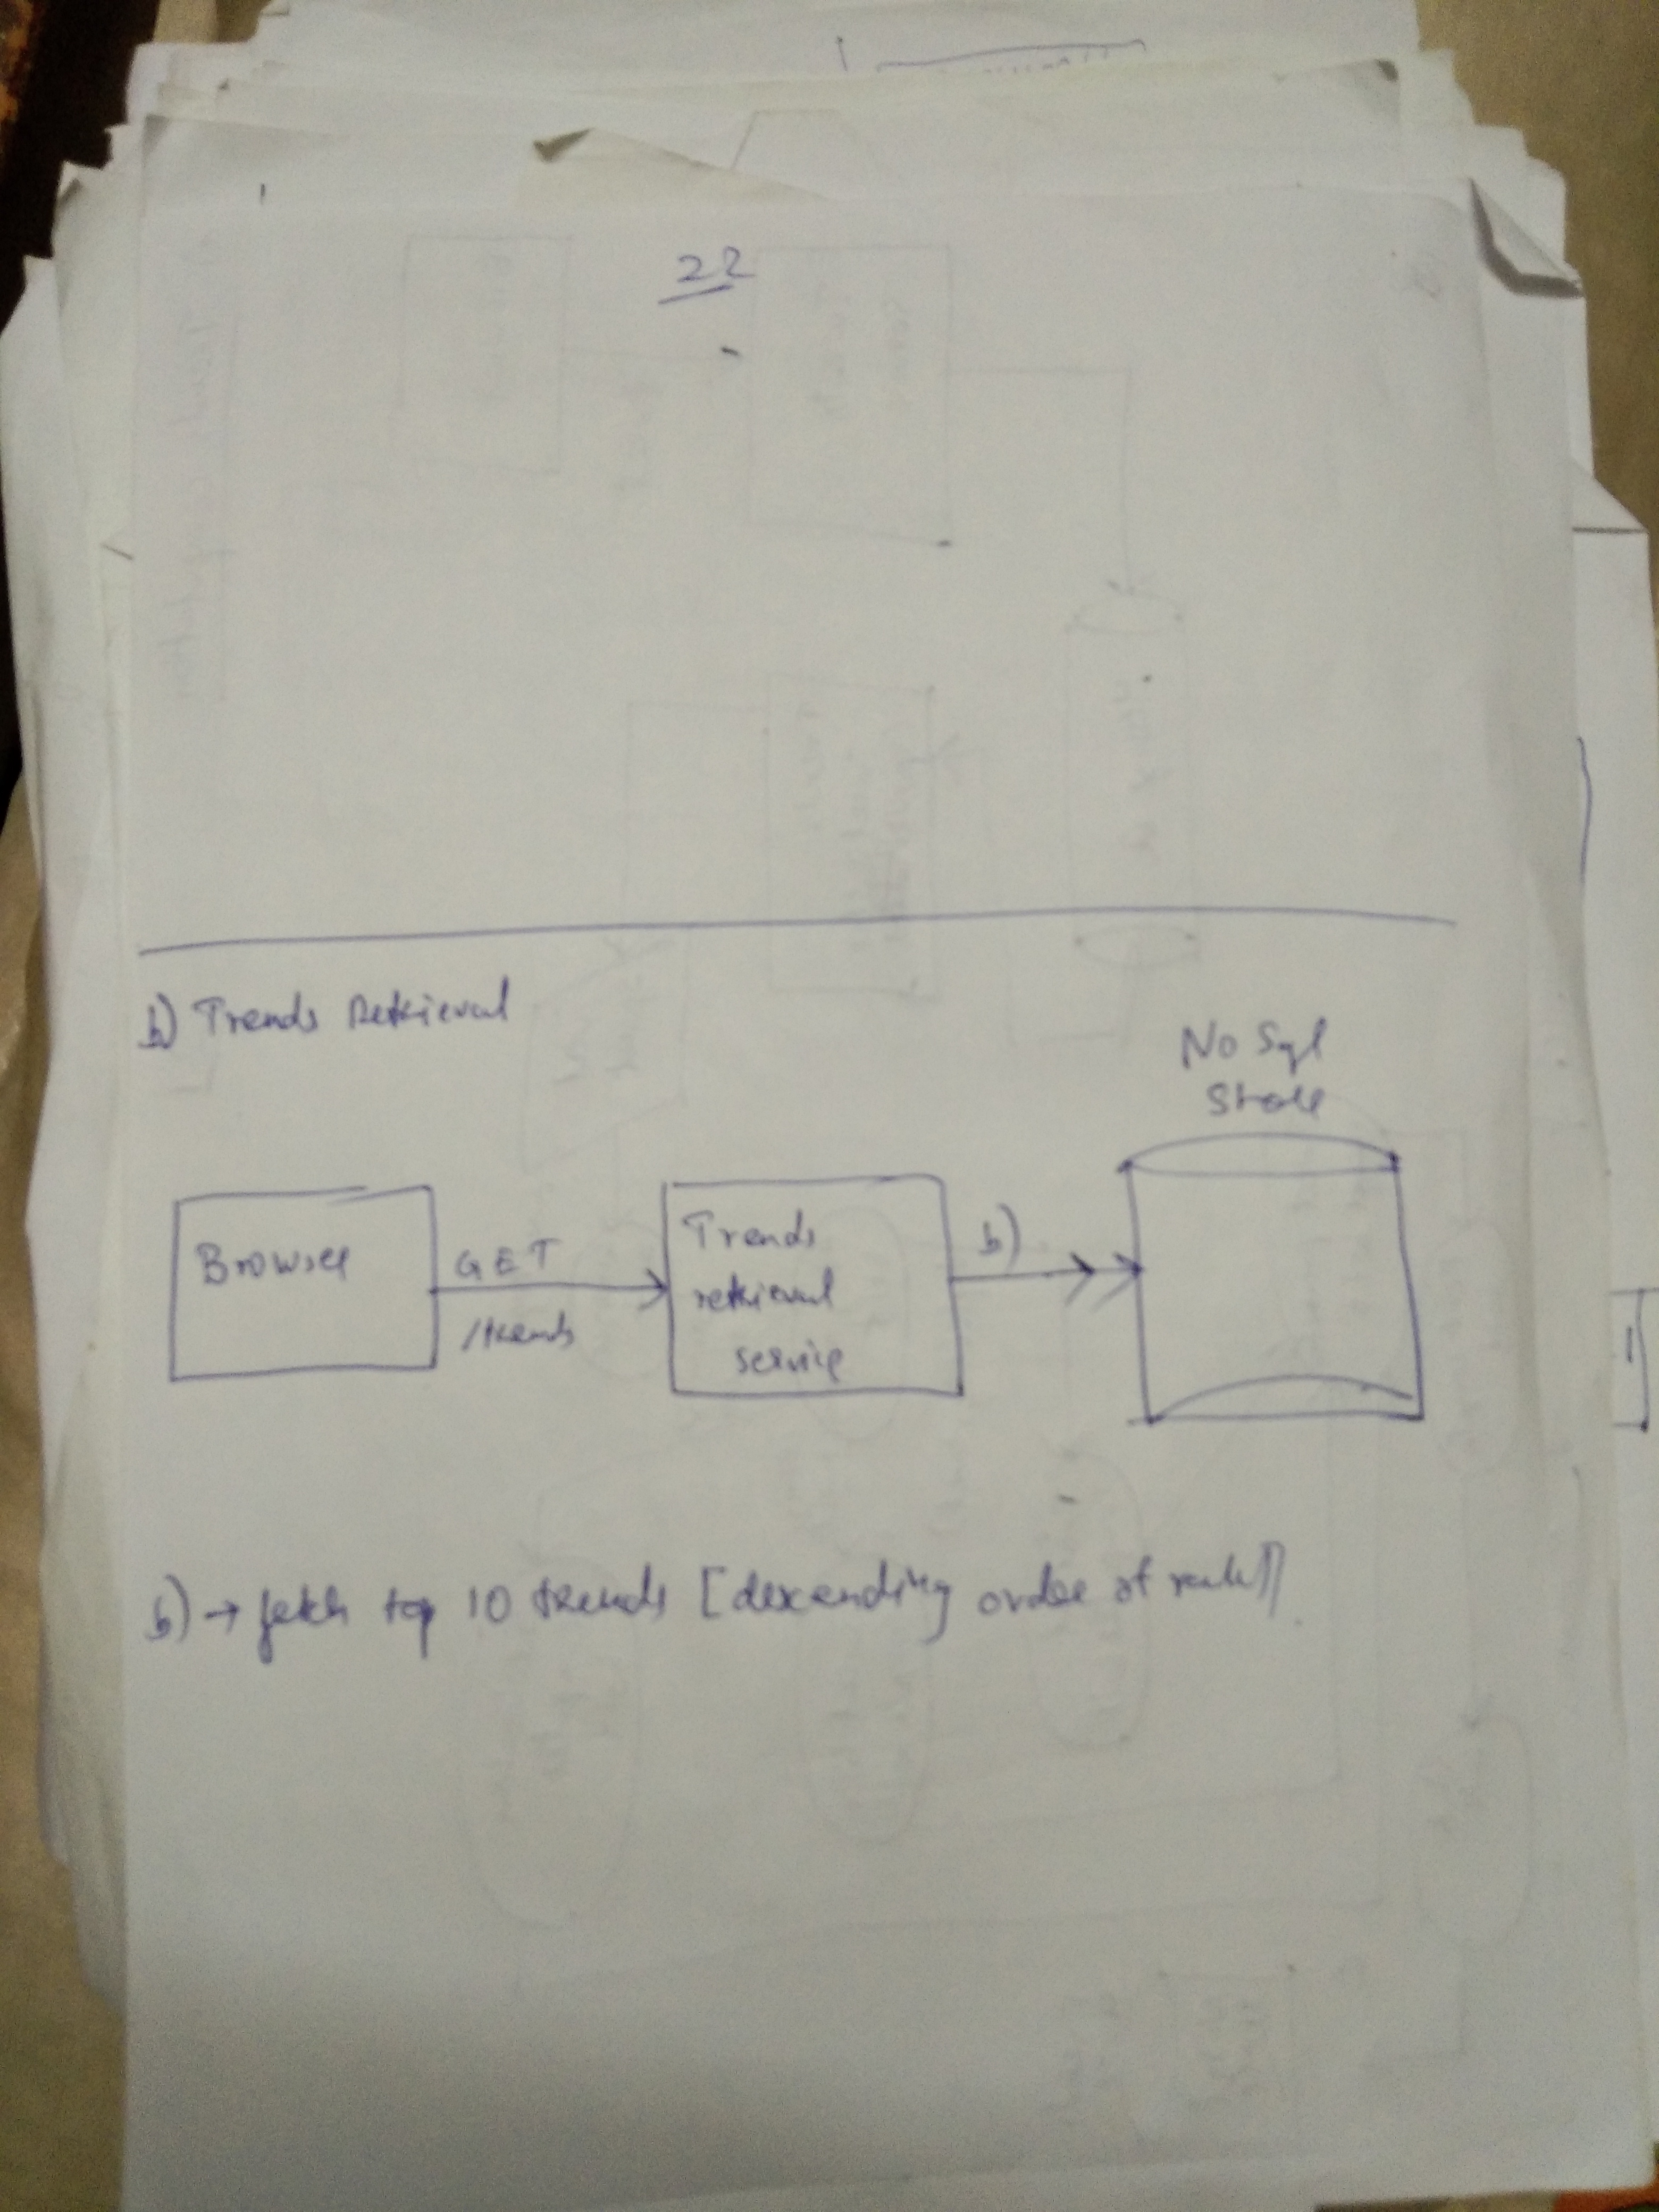 22
b) Trends Retrieval
No Sql
Store
Browser
GET
/trends
Trends
retrieval
service
b)
b) → fetch top 10 trends [descending order of rank]